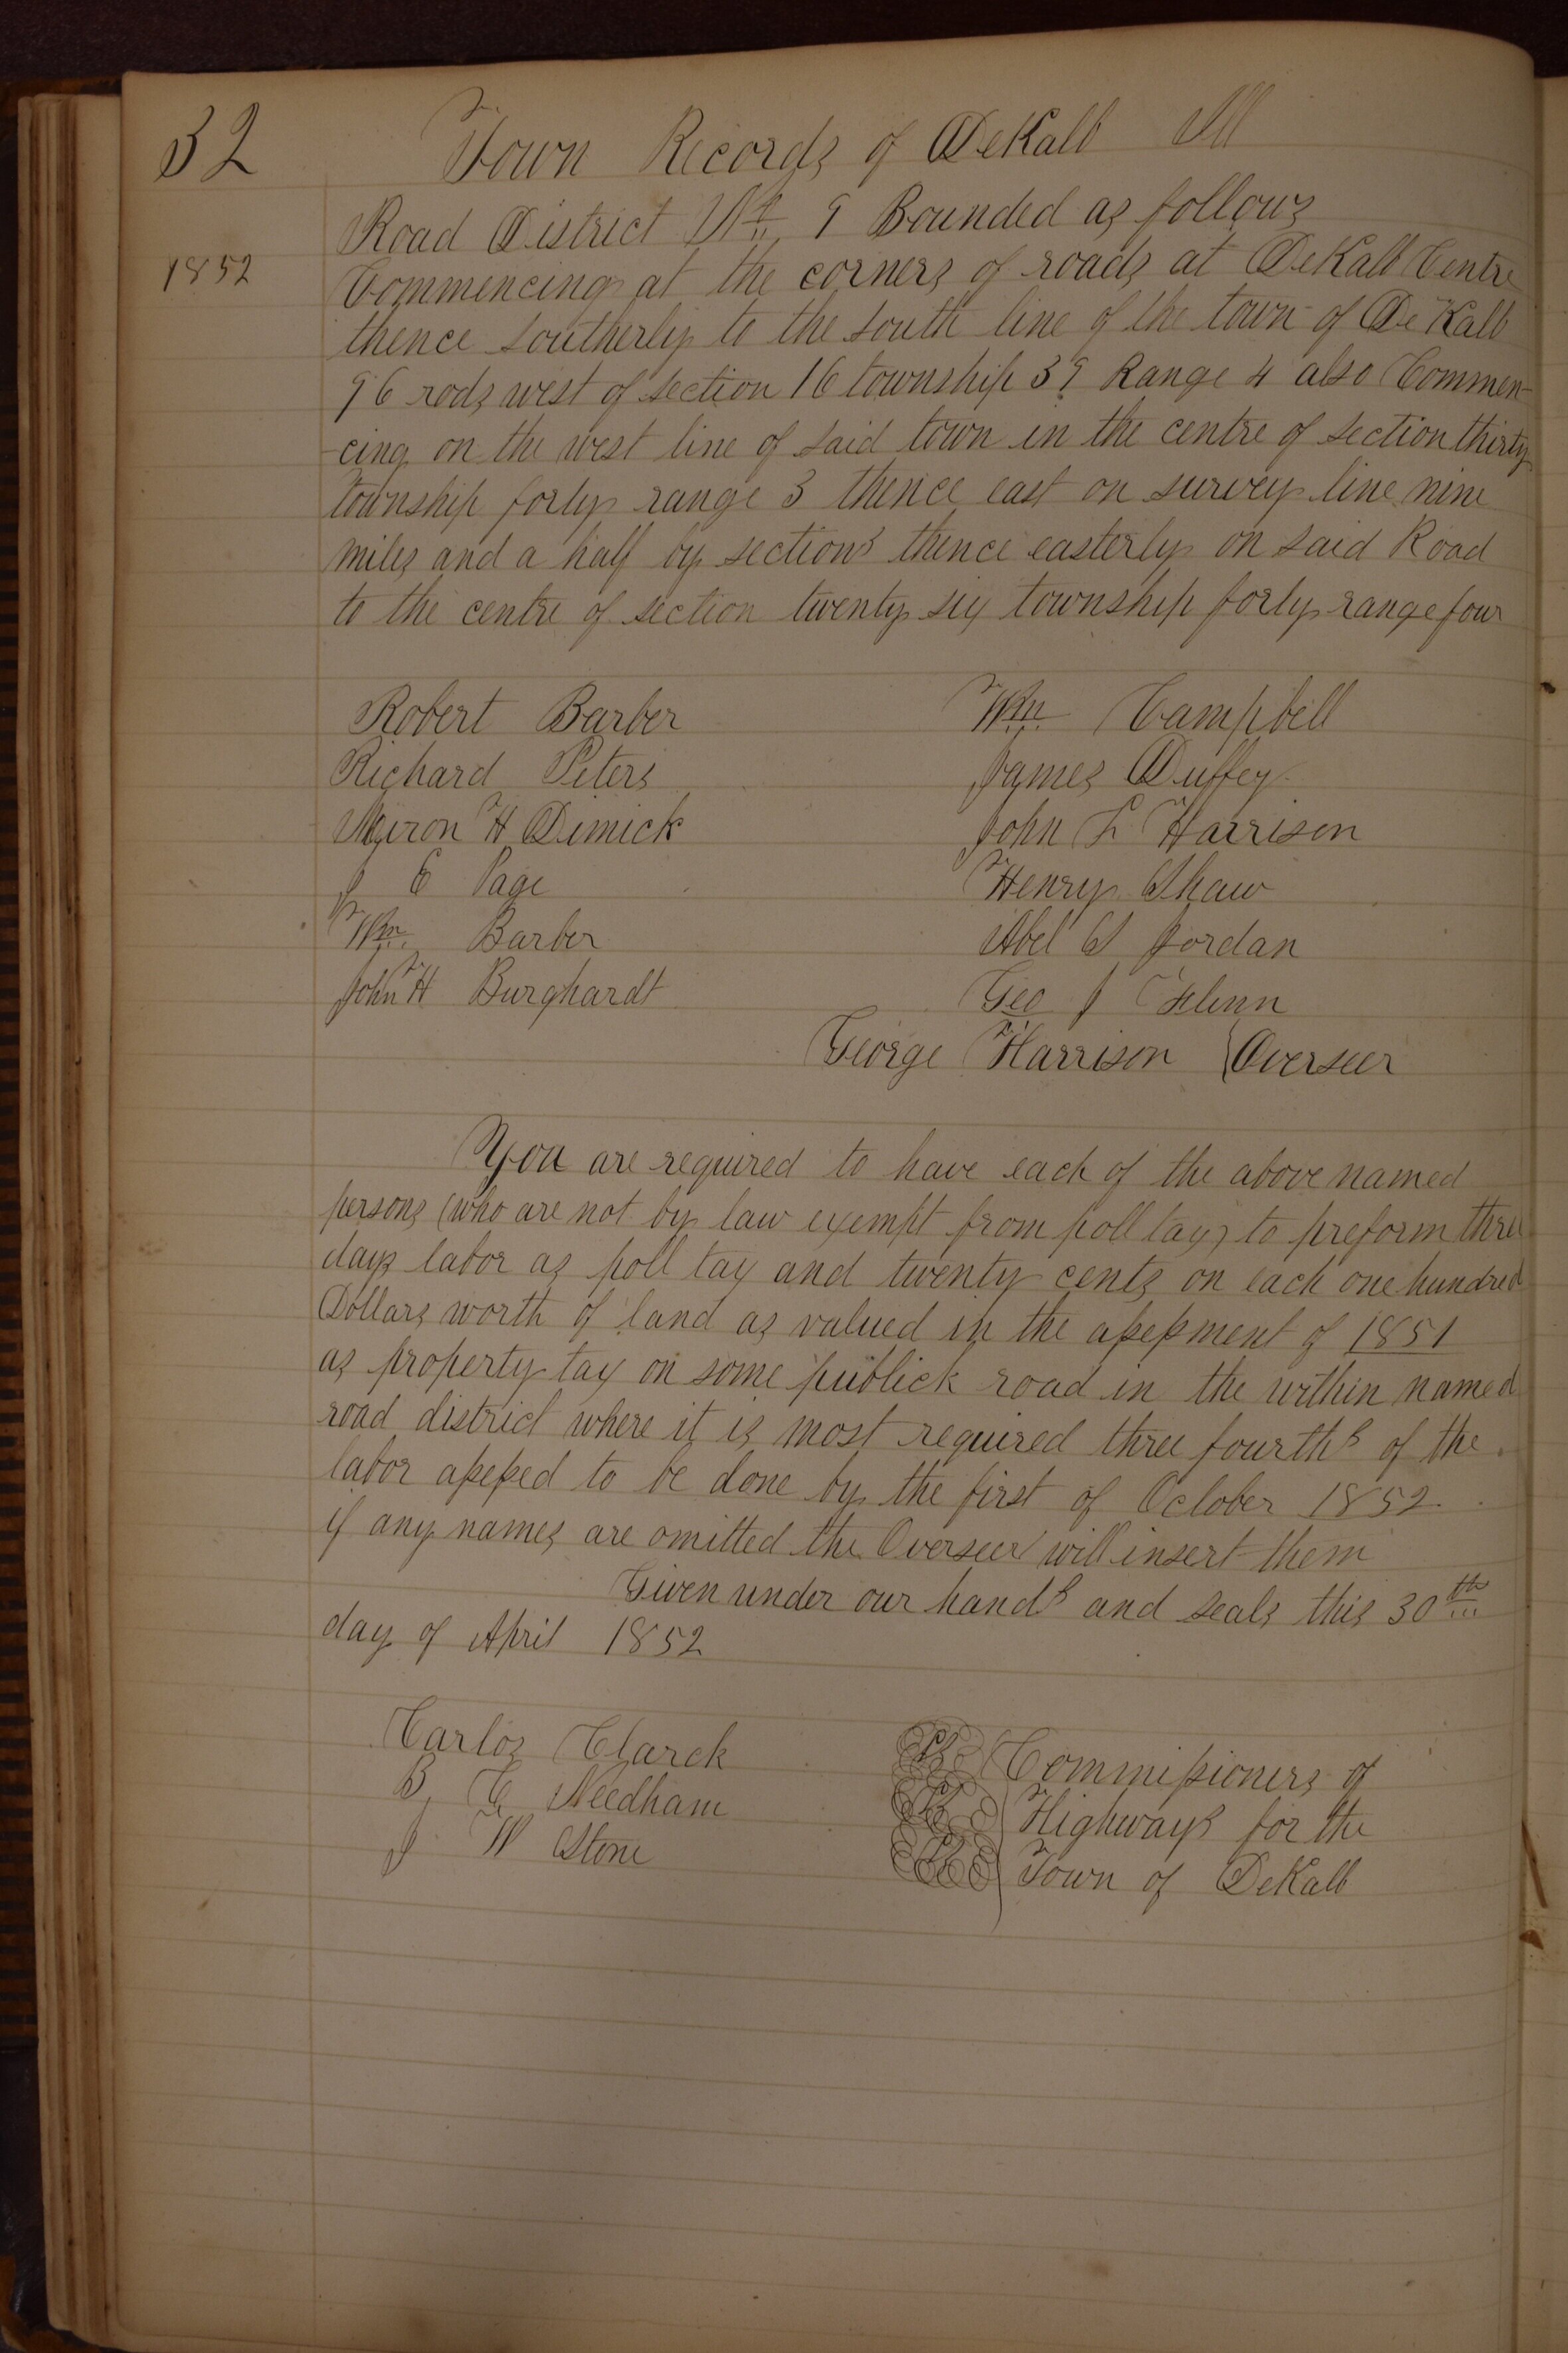 32 Town Records of DeKalb Ill
Road District No. 9 Bounded as follows
1852 Commencing at the corners of roads at DeKalb Centre
thence southerly to the south line of the town of De Kalb
96 rods west of section 16 township 39 Range 4 also Commen-
-cing on the west line of said town in the centre of section thirty
township forty range 3 thence east on survey line nine
miles and a half by sections thence easterly on said Road
to the centre of section twenty six township forty range four
Robert Barber Wm. Campbell
Richard Peters James Duffey
Myron H Dimick John L Harrison
J E Page Henry Shaw
Wm. Barber Abel S Jordan
John H Burghardt Geo J Flinn
George Harrison {Overseer
You are required to have each of the above named
persons (who are not by law exempt from poll tax) to preform three
days labor as poll tax and twenty cents on each one hundred
Dollars worth of land as valued in the assessment of 1851
as property tax on some publick road in the within named
road district where it is most required three fourths of the
labor assessed to be done by the first of October 1852.
if any names are omitted the Overseer will insert them
Given under our hands and seals this 30th
day of April 1852
Carlos Clarck Commissioners of
B, C Needham Highways for the
J W Stone Town of DeKalb